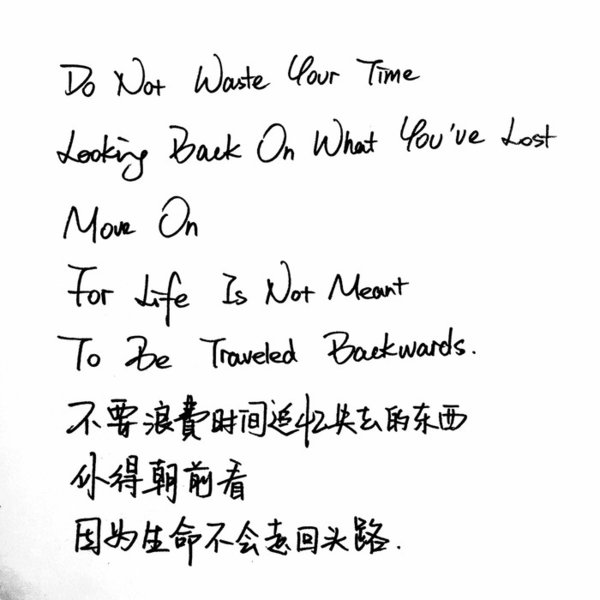 Do Not Waste Your Time
Looking Back On What You've Lost
Move On
For Life Is Not Meant
To Be Traveled Backwards.
不要浪費时间追忆失去的东西
你得朝前看
因为生命不会走回头路.